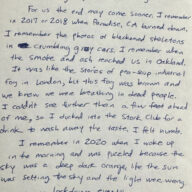 For us the end may come sooner. I remember
in 2017 or 2018 when Paradise, CA burned down.
I remember the photos of blackened skeletons
in crumbling gray cars. I remember when
the smoke and ash reached us in Oakland.
It was like the stories of pre-war industrial
fog in London, but this fog was brown and
we knew we were breathing in dead people.
I couldn't see further than a few feet ahead
of me, so I ducked into the Stork Club for a
drink to wash away the taste. I felt numb.
I remember in 2020 when I woke up
in the morning and was puzzled because the
sky was a deep dark orange, like the sun
was setting the sky and the light were worn